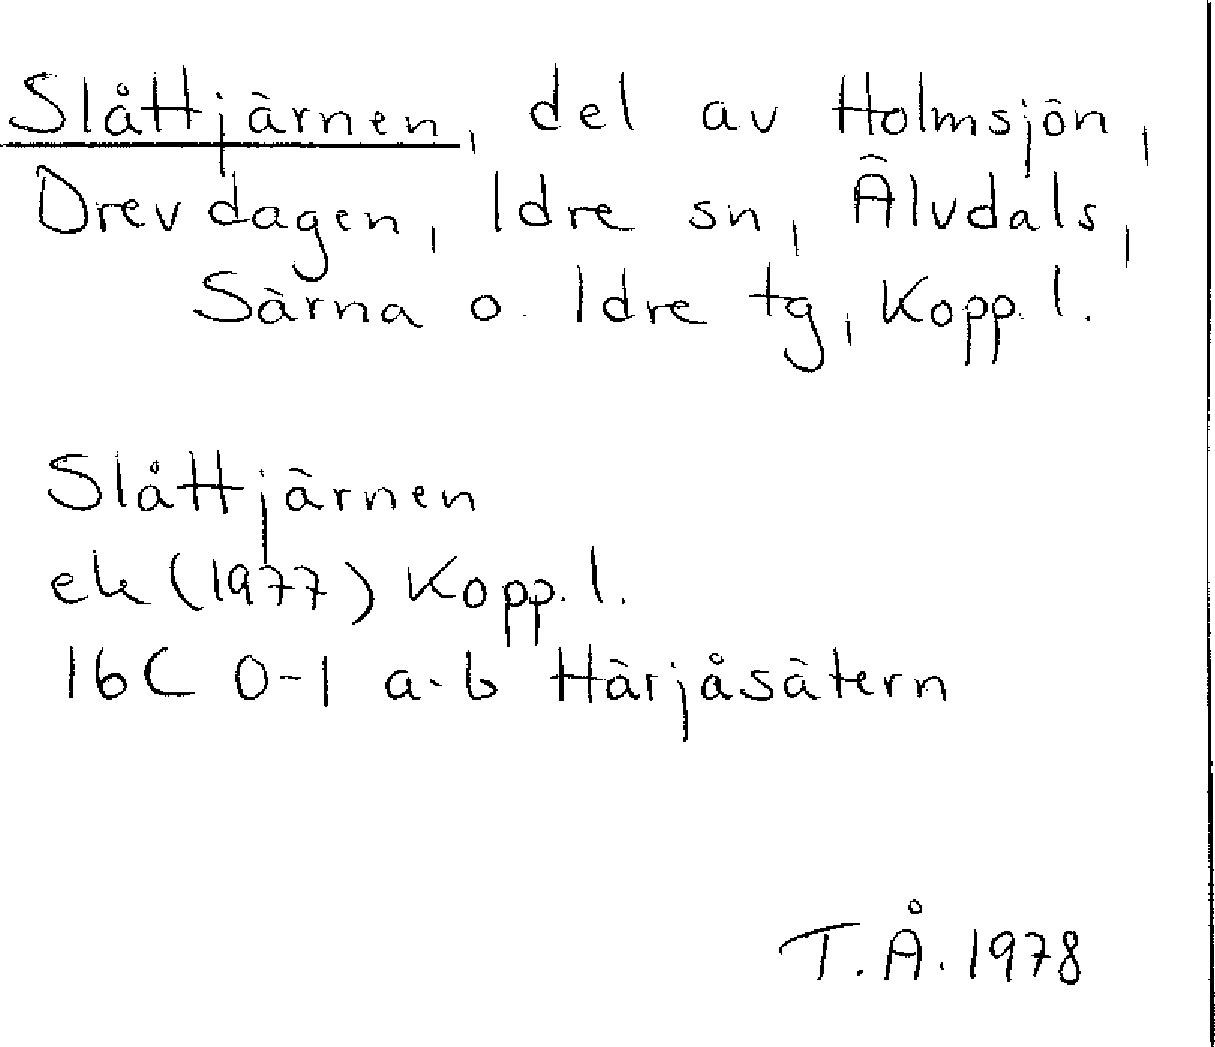 Slåttjärnen, del av Holmsjön,
Drevdagen, Idre sn, Älvdals,
Särna o. Idre tg, Kopp. l.
Slåttjärnen
ek (1977) Kopp. l.
16C 0-1 a-b Härjåsätern
T.Å. 1978